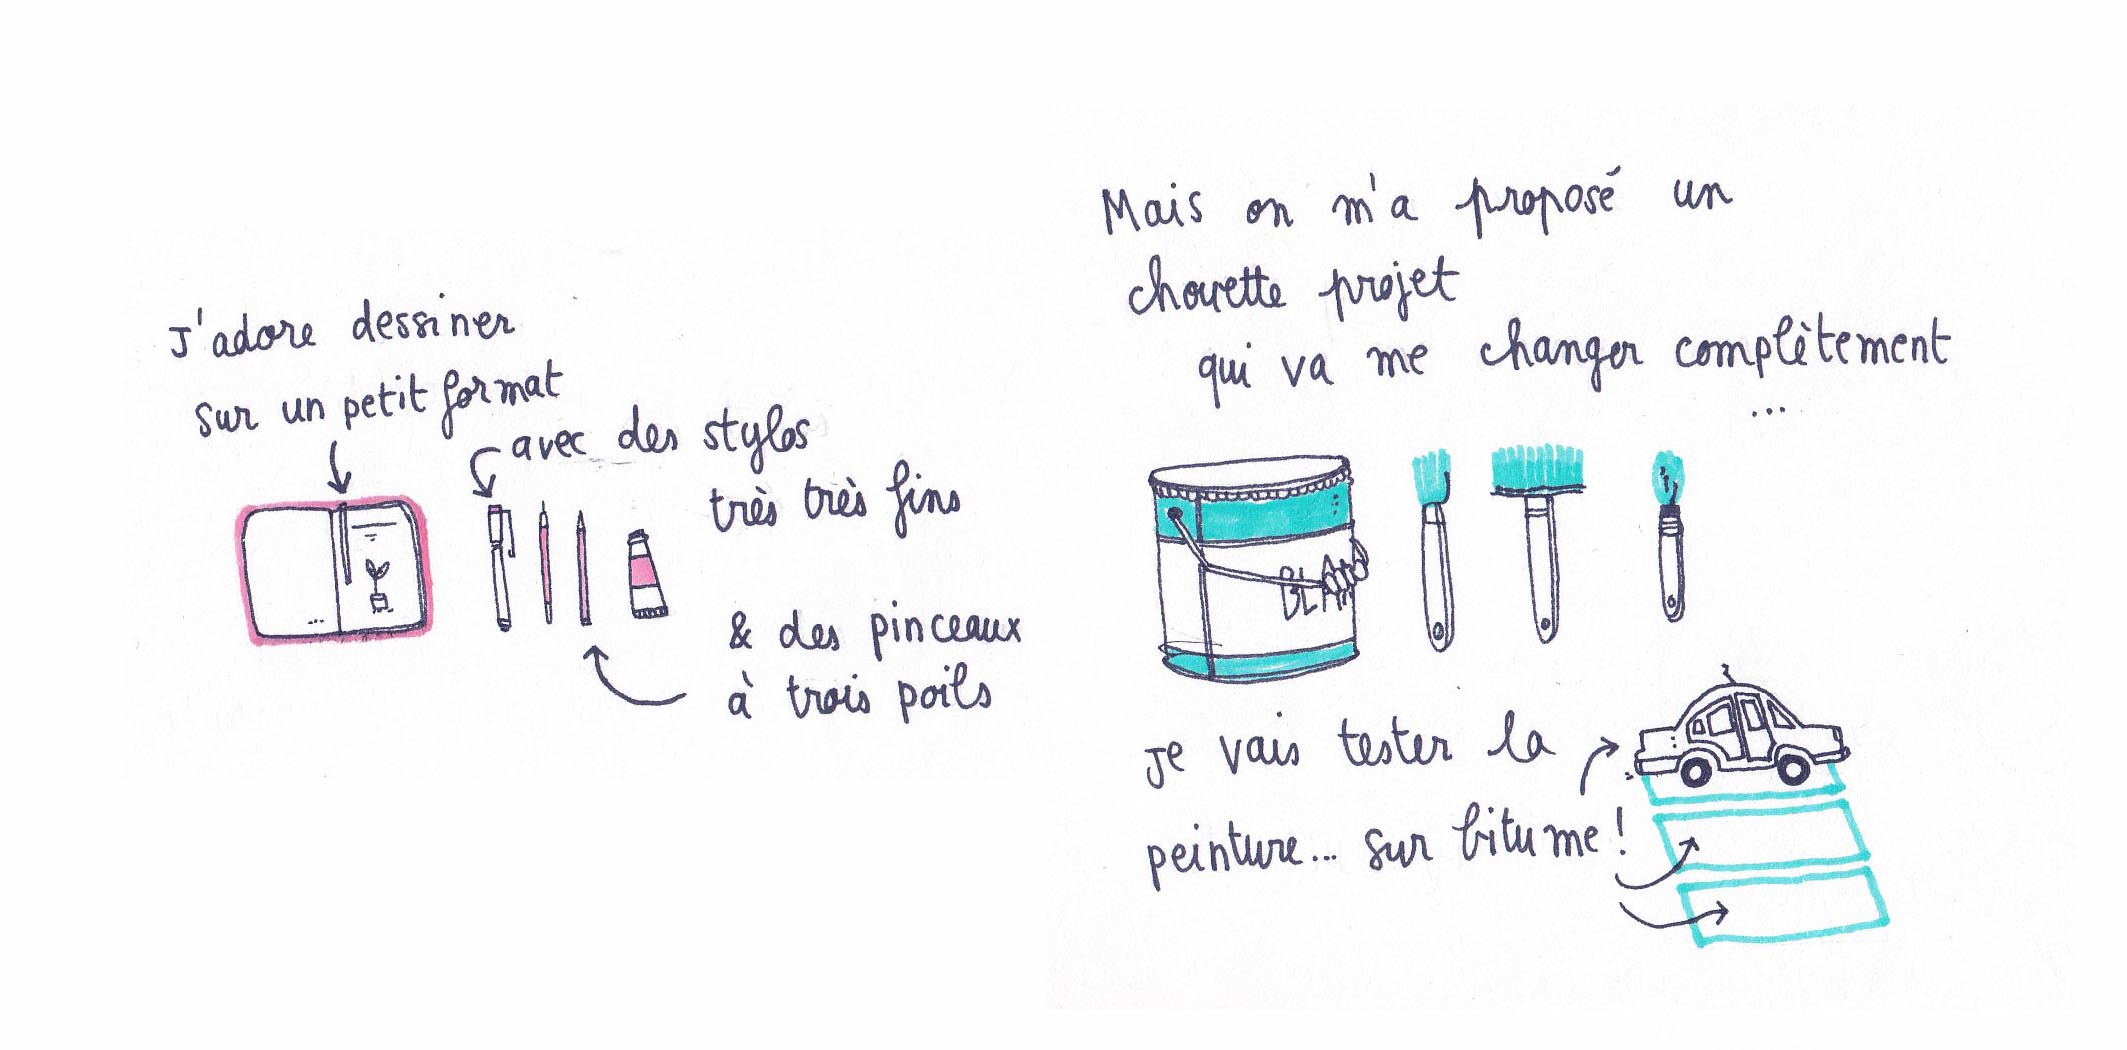 J'adore dessiner
sur un petit format
avec des stylos
très très fins
& des pinceaux
à trois poils
Mais on m'a proposé un
chouette projet
qui va me changer complètement
...
Je vais tester la
peinture... sur bitume !